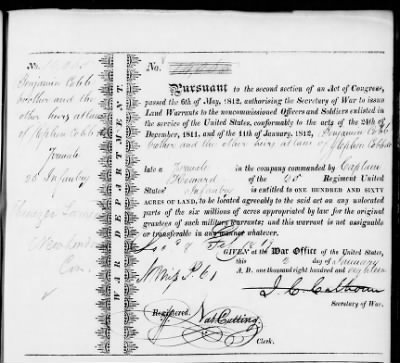 No.
Benjamin Cobb
brother and the
other heirs at law
of Stephen Cobb
Private
25 Infantry
Con.
WAR DEPARTMENT.
No.
Pursuant to the second section of an Act of Congress,
passed the 6th of May, 1812, authorising the Secretary of War to issue
Land Warrants to the noncommissioned Officers and Soldiers enlisted in
the service of the United States, conformably to the acts of the 24th of
December, 1811, and of the 11th of January, 1812, Benjamin Cobb
brother and the other heirs at law of Stephen Cobb
late a Private in the company commanded by Captain
Howard of the 25th Regiment United
States' Infantry
is entitled to ONE HUNDRED AND SIXTY
ACRES OF LAND, to be located agreeably to the said act on any unlocated
parts of the six millions of acres appropriated by law for the original
grantees of such military warrants; and this warrant is not assignable
or transferable in any manner whatever.
GIVEN at the War Office of the United States,
this day of
A. D. one thousand eight hundred and eighteen
J. C. Calhoun
Secretary of War.
Registered. Nat. Cutting
Clerk.